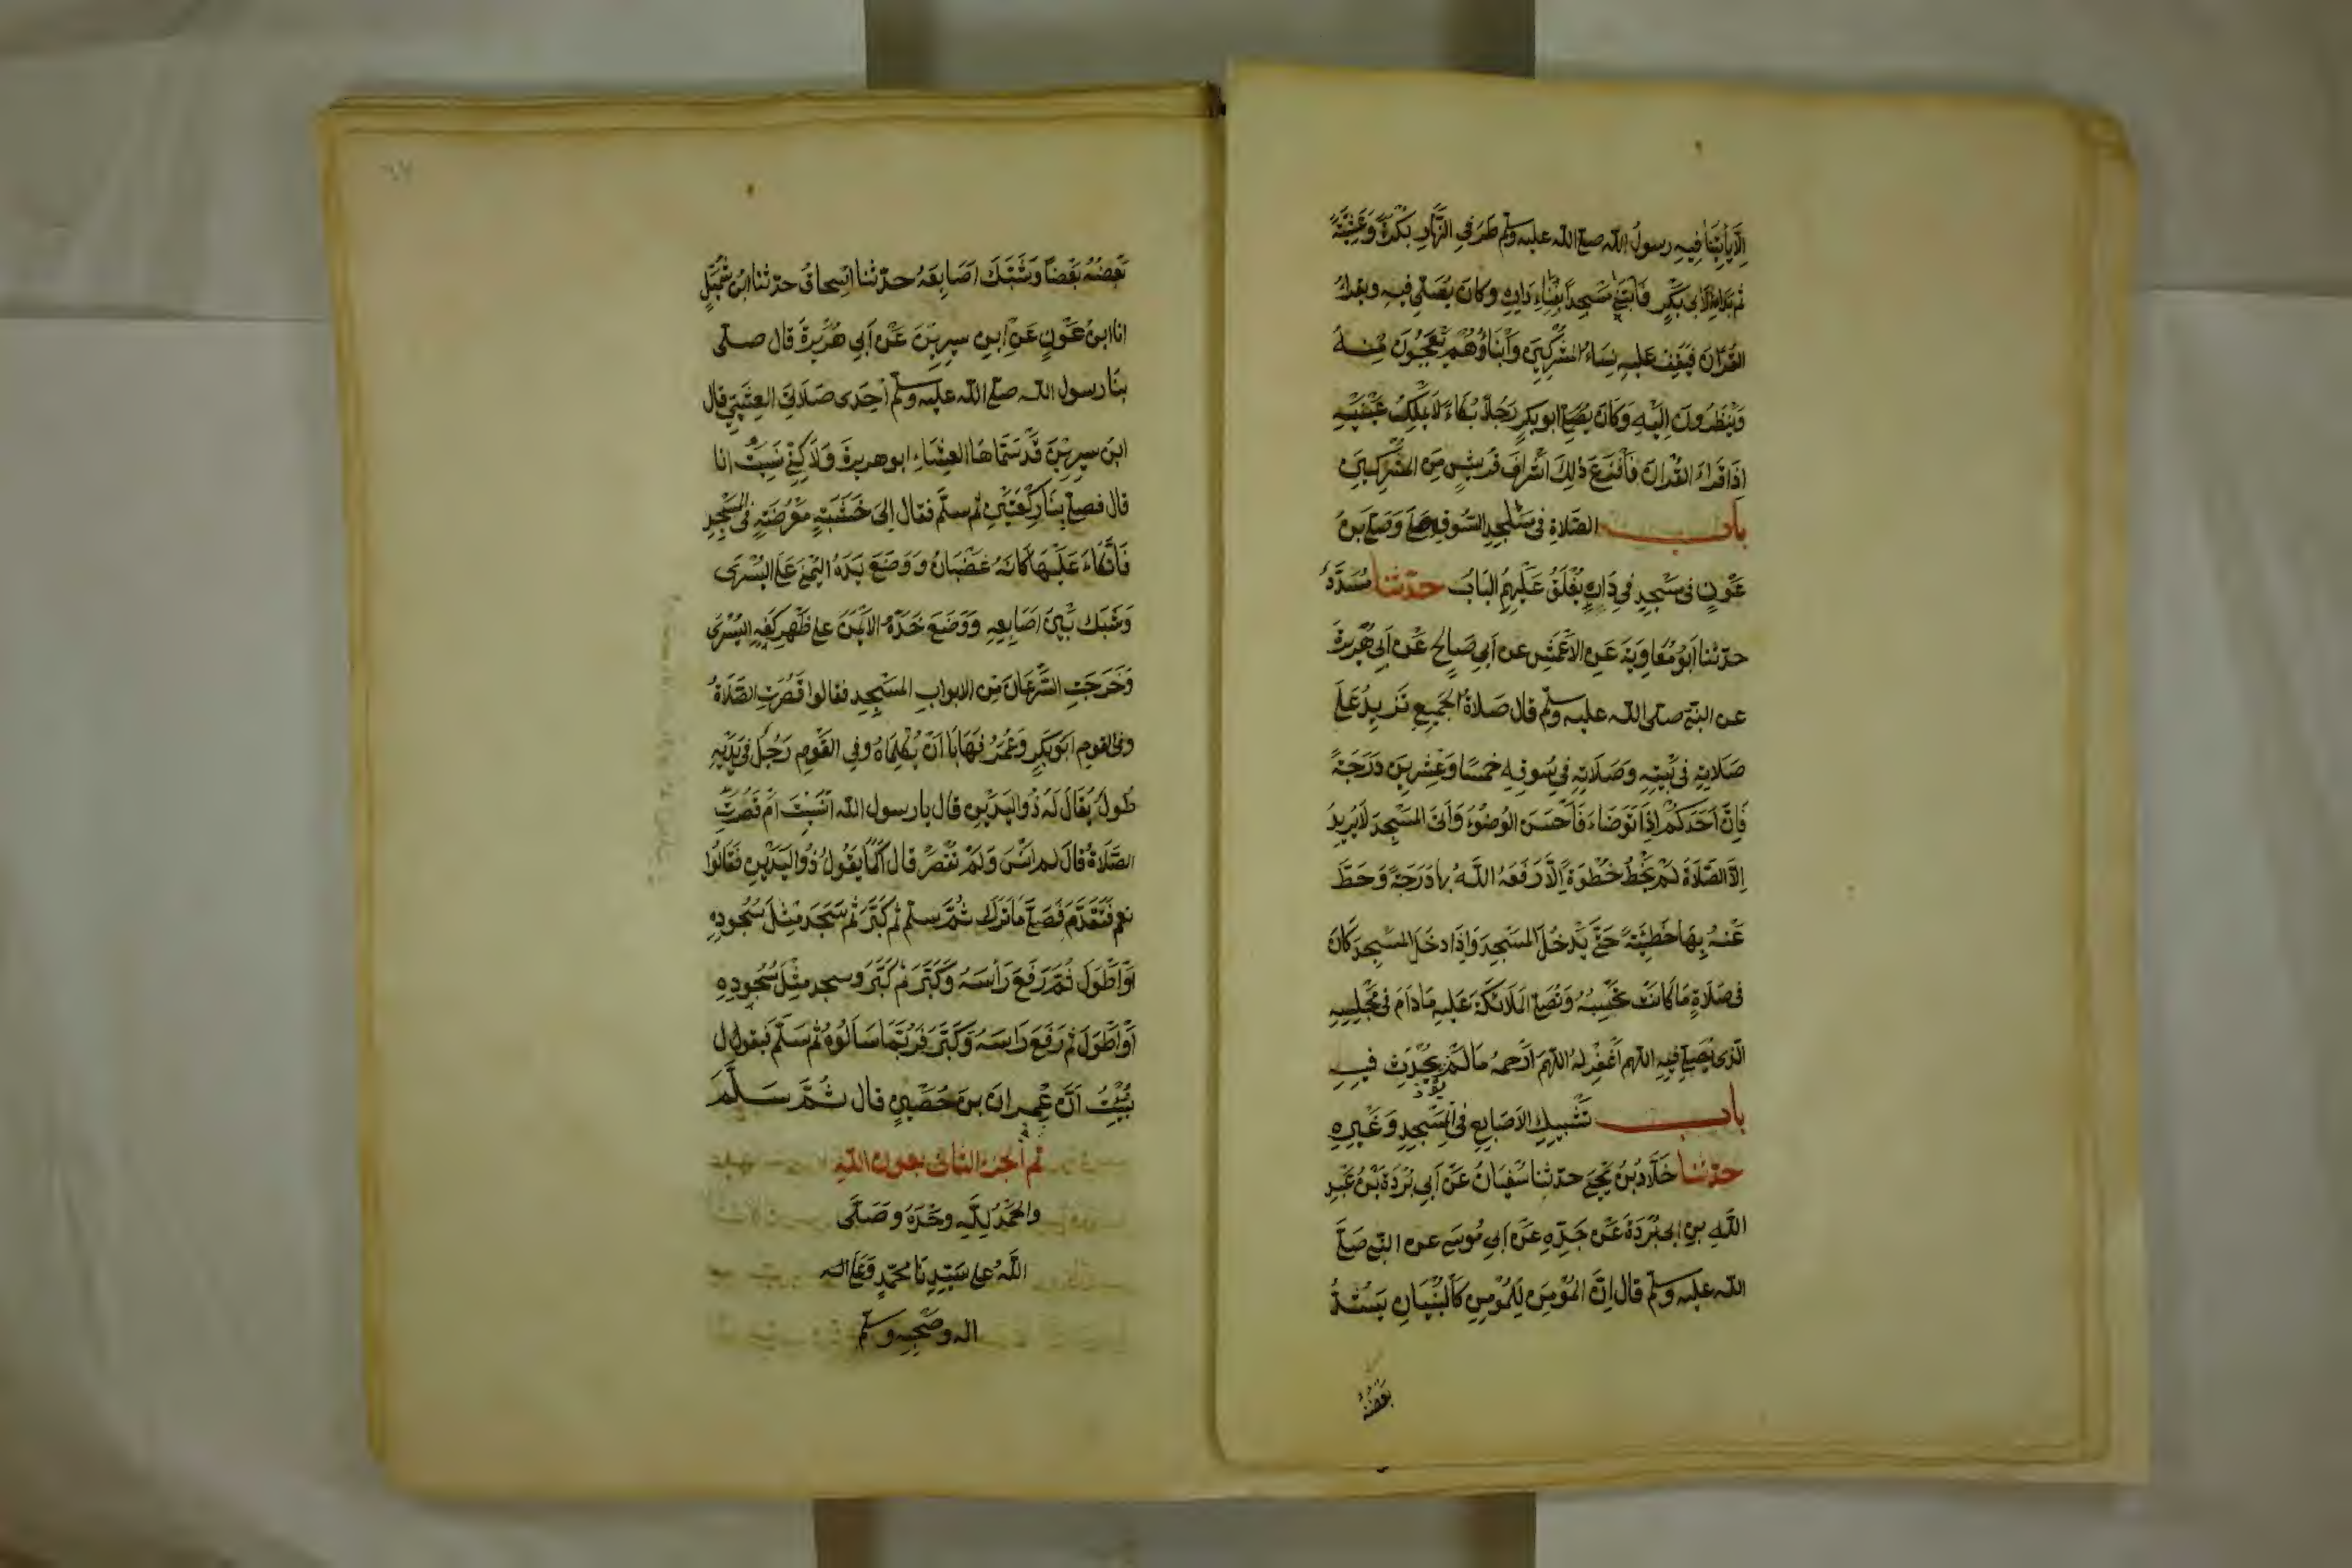 اِلَّا يَأْتِيْنَا فِيهِ رسولُ اللّٰه صلى اللّٰه عليه وسلم طَرَفَيِ النَّهَارِ بُكْرَةً وَعَشِيَّةً
ثم بَدَا لِاَبِى بَكْرٍ فَابْتَنٰى مَسْجِدًا بِفِنَاءِ دَارِهِ وكانَ يُصَلِّي فِيهِ ويقراُ
القُرْاٰنَ فَيَقِفُ عَليهِ نِسَاءُ المُشْرِكِينَ وَأَبْنَاؤُهُمْ يَعْجَبُونَ مِنْهُ
وَيَنْظُرُونَ اِلَيْهِ وَكَانَ ابو بكرٍ رَجُلًا بَكَّاءً لَا يَمْلِكُ عَيْنَيْهِ
اِذَا قَرَاءَ القُرْاٰنَ فَأَفْزَعَ ذٰلِكَ اَشْرَافَ قُرَيْشٍ مِنَ المُشْرِكِينَ
بابُ الصَّلَاةِ فى مَسْجِدِ السُّوقِ وَصَلَّى ابنُ
عَوْنٍ فى مَسْجِدٍ فى دَارٍ يُغْلَقُ عَلَيْهِمُ البَابُ حدّثنا مُسَدَّدٌ
حدّثنا اَبُو مُعَاوِيَةَ عَنِ الاَعْمَشِ عن اَبِى صَالِحٍ عَنْ اَبِى هُرَيْرَةَ
عن النبىّ صلى اللّٰه عليه وسلّم قال صَلَاةُ الجَمِيعِ تَزِيدُ عَلَى
صَلَاتِهِ فى بَيْتِهِ وَصَلَاتِهِ فى سُوقِهِ خَمْسًا وَعِشْرِينَ دَرَجَةً
فَاِنَّ اَحَدَكُمْ اِذَا تَوَضَّاءَ فَاَحْسَنَ الوُضُوْءَ وَاَتَى المَسْجِدَ لَا يُرِيدُ
اِلَّا الصَّلَاةَ لَمْ يَخْطُ خُطْوَةً اِلَّا رَفَعَهُ اللّٰهُ بِهَا دَرَجَةً وَحَطَّ
عَنْهُ بِهَا خَطِيْئَةً حَتَّى يَدْخُلَ المَسْجِدَ وَاِذَا دخَلَ المَسْجِدَ كَانَ
فى صَلَاةٍ مَا كَانَتْ تَحْبِسُهُ وَتُصَلِّى المَلَائِكَةُ عَلَيهِ مَادَامَ فى مَجْلِسِهِ
الّذِى يُصَلِّى فِيهِ اللهم اغْفِرْ لَهُ اللهم ارْحَمْهُ مَا لَمْ يُؤْذِ يُحْدِثْ فِيهِ
بابُ تَشْبِيكِ الاَصَابِعِ فى المَسْجِدِ وَغَيْرِهِ
حدّثنا خَلَّادُ بْنُ يَحْيَى حدّثنا سُفْيَانُ عَنْ اَبِى بُرْدَةَ بْنِ عَبْدِ
اللّٰهِ بنِ اَبِى بُرْدَةَ عَنْ جَدِّهِ عَنْ اَبِى مُوسَى عن النبى صَلَّى
اللّٰه عليه وسلم قال اِنَّ المُؤْمِنَ لِلْمُؤْمِنِ كَالْبُنْيَانِ يَشُدُّ
بَعْضُهُ
بَعْضُهُ بَعْضًا وَشَبَّكَ اَصَابِعَهُ حدّثنا اِسْحَاقُ حدّثنا ابْنُ شُمَيْلٍ
انا ابنُ عَوْنٍ عَنْ ابنِ سِيرِينَ عَنْ اَبِى هُرَيْرَةَ قال صلى
بِنَا رسول اللّٰه صلى اللّٰه عليه وسلم اِحْدَى صَلَاتَىِ العَشِيِّ قال
ابنُ سِيرِينَ قَدْ سَمَّاهَا العِشَاءَ ابو هريرةَ وَلَاكِنْ نَسِيْتُ انا
قال فصلى بِنَا رَكْعَتَيْنِ ثم سلّم فقال اِلَى خَشَبَةٍ مَعْرُضَةٍ فى المَسْجِدِ
فَاتَّكَاءَ عَلَيْهَا كَانَّهُ غَضْبَانُ وَوَضَعَ يَدَهُ اليُمْنَى عَلَى اليُسْرَى
وَشَبَّكَ بَيْنَ اَصَابِعِهِ وَوَضَعَ خَدَّهُ الاَيْمَنَ على ظَهْرِ كَفِّهِ اليُسْرَى
وَخَرَجَتِ السَّرَعَانُ مِنَ الابوابِ المَسْجِدِ فقالوا قَصُرَتِ الصَّلَاةُ
وفى القومِ اَبُو بَكْرٍ وَعُمَرُ فَهَابَا اَنْ يُكَلِّمَاهُ وفى القَوْمِ رَجُلٌ فى يَدَيْهِ
طُولٌ يُقَالُ لَهُ ذُو اليَدَيْنِ قال يا رسول اللّٰه اَنَسِيْتَ اَمْ قَصُرَتِ
الصَّلَاةُ قال لم اَنْسَ وَلَمْ تُقْصَرْ قال اَكَمَا يَقُولُ ذُو اليَدَيْنِ فَقَالُوا
نعم فَتَقَدَّمَ فَصَلَّى مَا تَرَكَ ثُمَّ سلّم ثم كَبَّرَ ثم سَجَدَ مِثْلَ سُجُودِهِ
اَوْ اَطْوَلَ ثُمَّ رَفَعَ رَأْسَهُ وَكَبَّرَ ثم كَبَّرَ وسجد مِثْلَ سُجُودِهِ
اَوْ اَطْوَلَ ثم رَفَعَ رَاسَهُ وَكَبَّرَ فَرُبَّمَا سَاَلُوهُ ثم سَلَّمَ فَيقول
نُبِّئْتُ اَنَّ عِمرانَ بنَ حُصَيْنٍ قال ثُمَّ سَلَّمَ
تم الجزء الثانى بعون اللّٰه
والحَمْدُ لِلّٰهِ وَحْدَهُ وصَلَّى
اللّٰهُ على سَيِّدِنَا مُحَمَّدٍ وَعَلَى اله
اله وصحبه وسلم